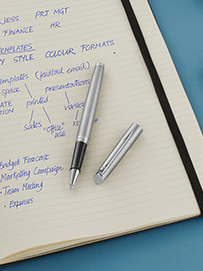 JESS PRJ MGT
FINANCE HR
TEMPLATES
STYLE COLOUR FORMATS
templates (feedback email)
space presentations
printed
sales "office"
Budget Forecast
Marketing Campaign
Team Meeting
Expenses